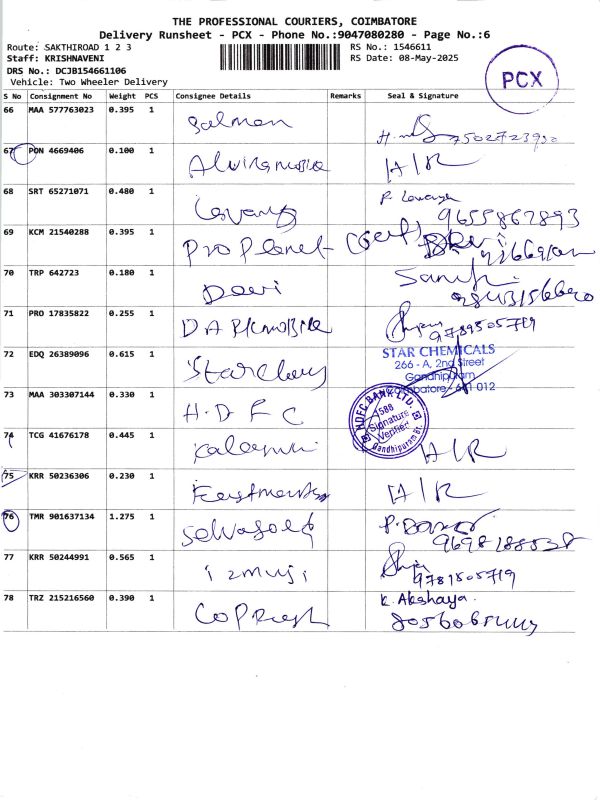 THE PROFESSIONAL COURIERS, COIMBATORE
Delivery Runsheet - PCX - Phone No.:9047080280 - Page No.:6
Route: SAKTHIROAD 1 2 3
RS No.: 1546611
Staff: KRISHNAVENI
RS Date: 08-May-2025
DRS No.: DCJB154661106
Vehicle: Two Wheeler Delivery
PCX
S No Consignment No Weight PCS Consignee Details Remarks Seal & Signature
66 MAA 577763023 0.395 1 Salman
67 PON 4669406 0.100 1 A/R
68 SRT 65271071 0.480 1 9655867893
69 KCM 21540288 0.395 1 Pro Planet
70 TRP 642723 0.180 1 Devi
71 PRO 17835822 0.255 1 9789505719
72 EDQ 26389096 0.615 1
STAR CHEMICALS
266 - A, 2nd Street
Gandhipuram
Coimbatore - 641 012
73 MAA 303307144 0.330 1 H.D.F.C
HDFC BANK LTD.
1588
Signature
Verified
Gandhipuram Br.
74 TCG 41676178 0.445 1 A/R
75 KRR 50236306 0.230 1 A/R
76 TMR 901637134 1.275 1
77 KRR 50244991 0.565 1
78 TRZ 215216560 0.390 1 K. Akshaya